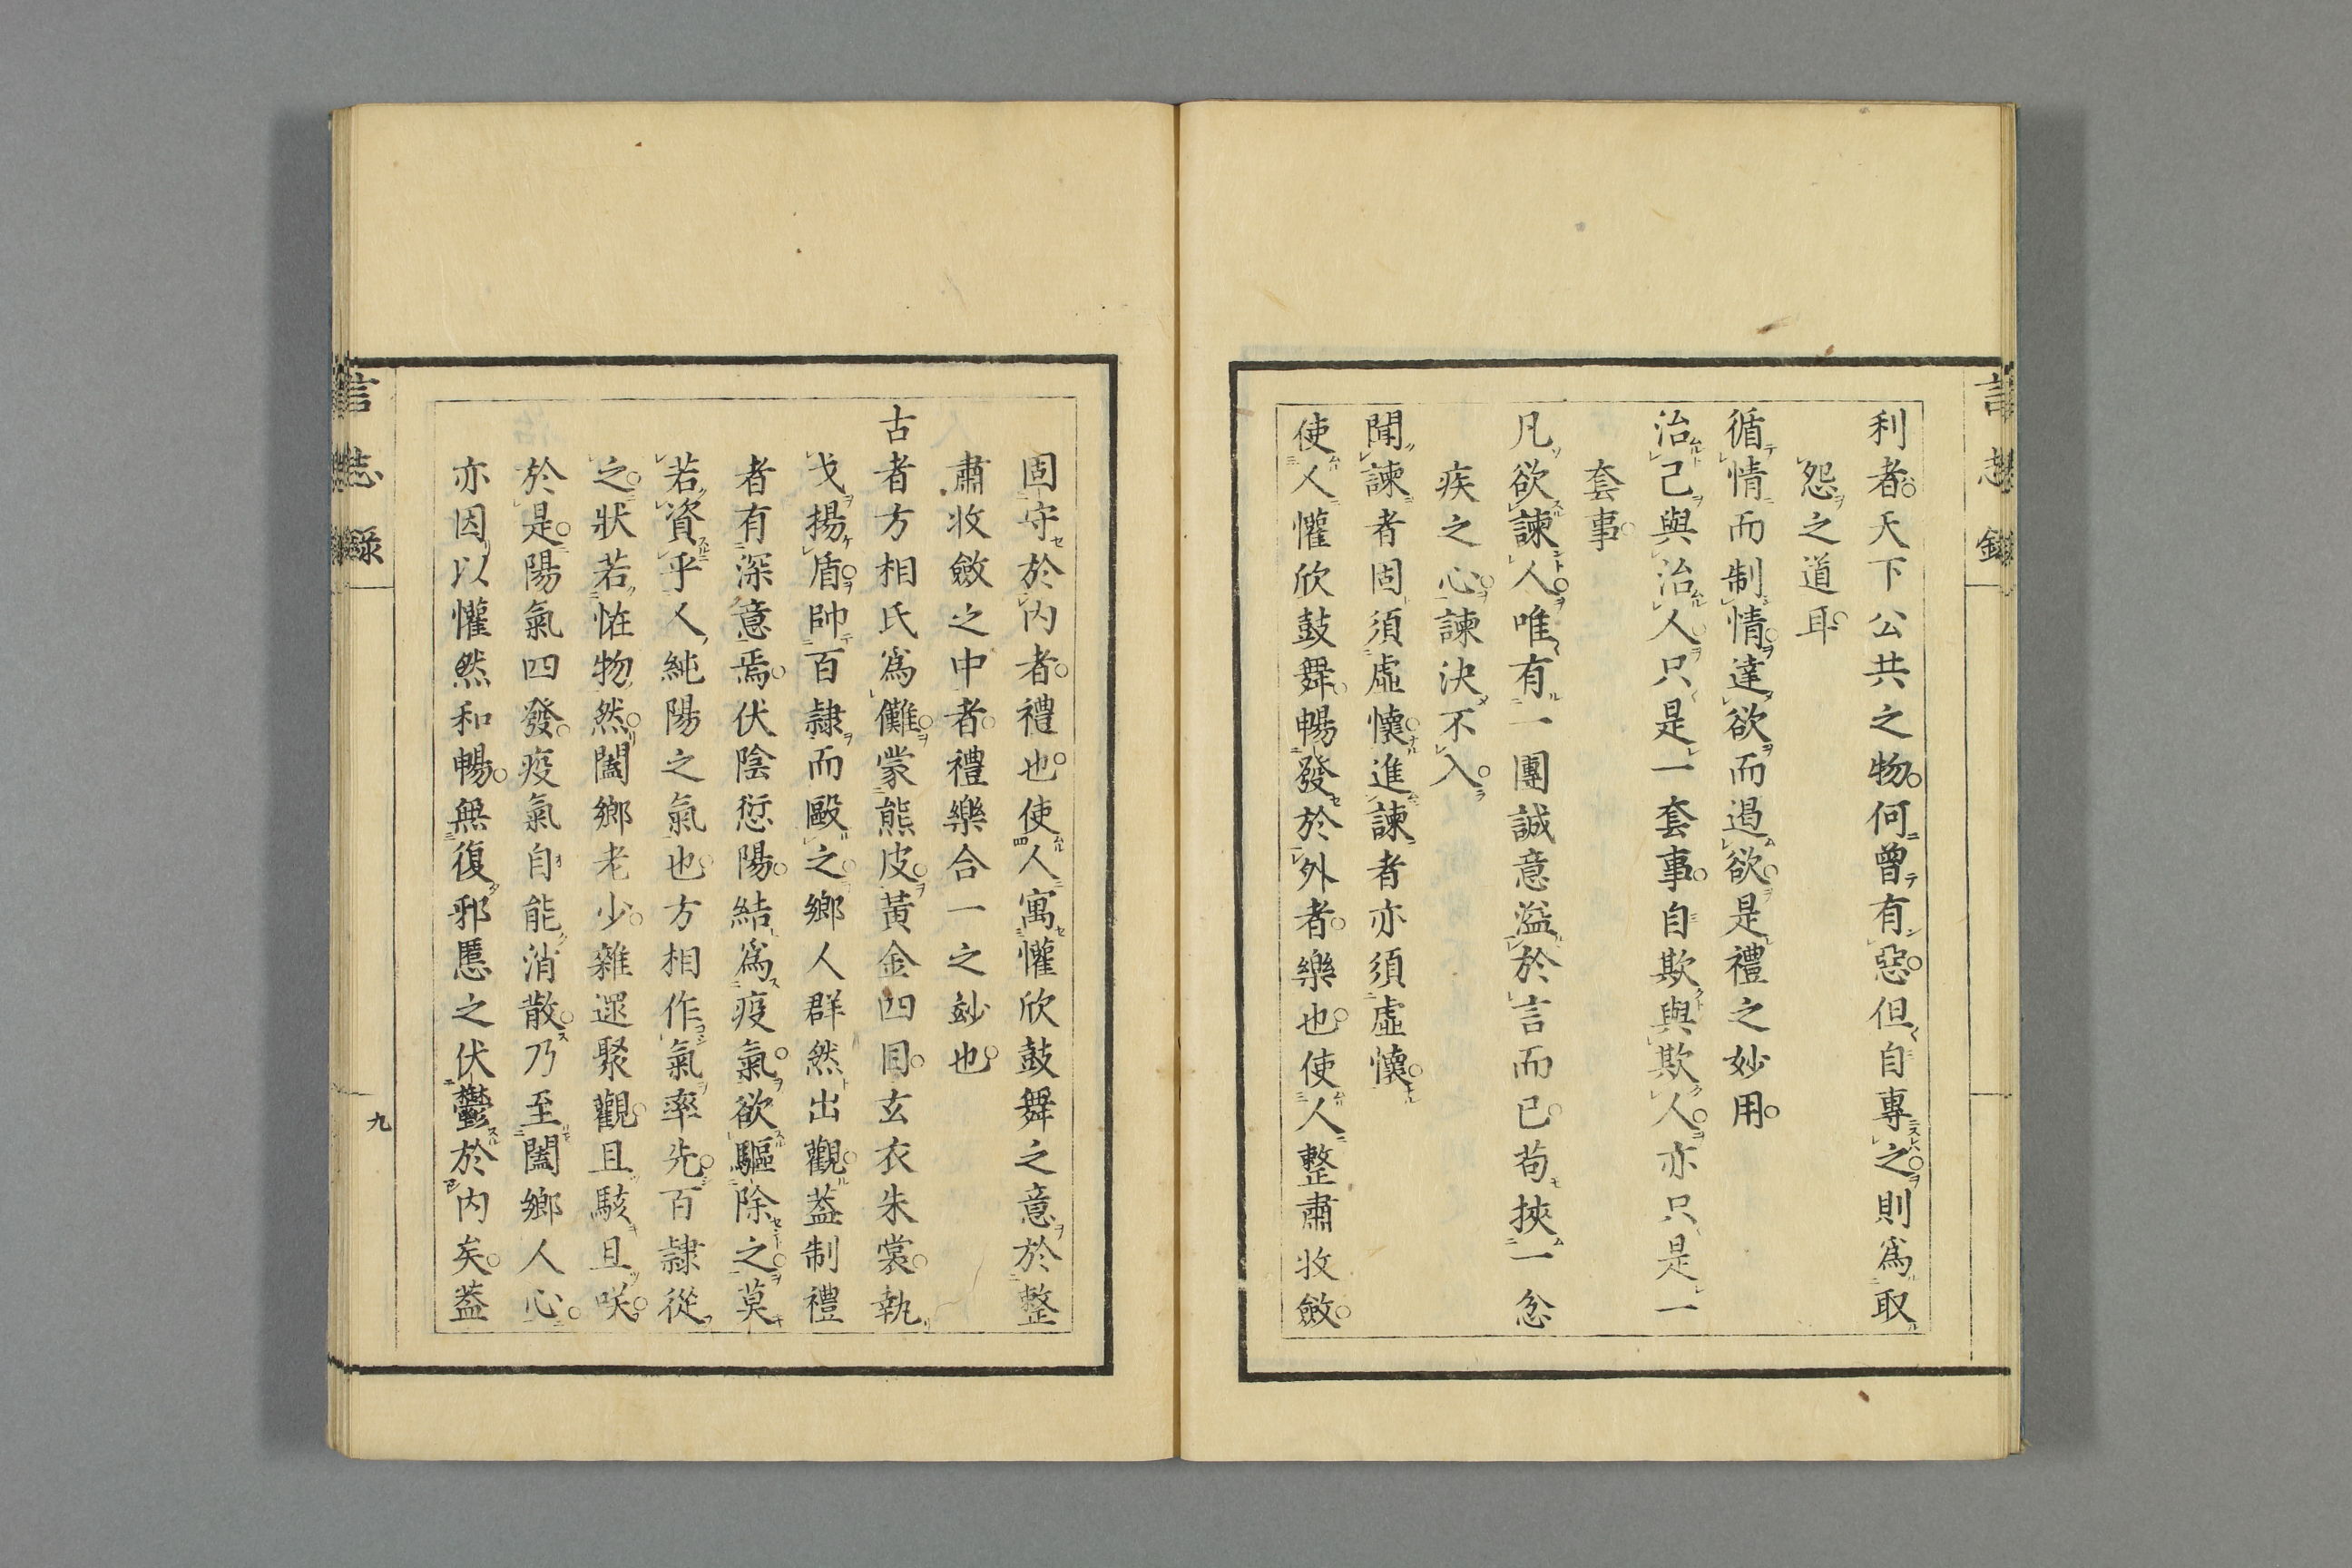 言志錄
利者天下公共之物何曾有惡但自專之則爲取
怨之道耳
循情而制情達欲而遏欲是禮之妙用
治己與治人只是一套事自欺與欺人亦只是一
套事
凡欲諫人唯有一團誠意溢於言而已苟挾一忿
疾之心諫決不入
聞諫者固須虛懷進諫者亦須虛懷
使人懽欣鼓舞暢發於外者樂也使人整肅收斂
固守於內者禮也使人寓懽欣鼓舞之意於整
肅收斂之中者禮樂合一之玅也
古者方相氏爲儺蒙熊皮黃金四目玄衣朱裳執
戈揚盾帥百隷而毆之鄉人群然出觀蓋制禮
者有深意焉伏陰愆陽結爲疫氣欲驅除之莫
若資乎人純陽之氣也方相作氣率先百隷從
之狀若恠物然闔鄉老少雜遝聚觀且駭且咲
於是陽氣四發疫氣自能消散乃至闔鄉人心
亦因以懽然和暢無復邪慝之伏鬱於內矣蓋
言志錄
九